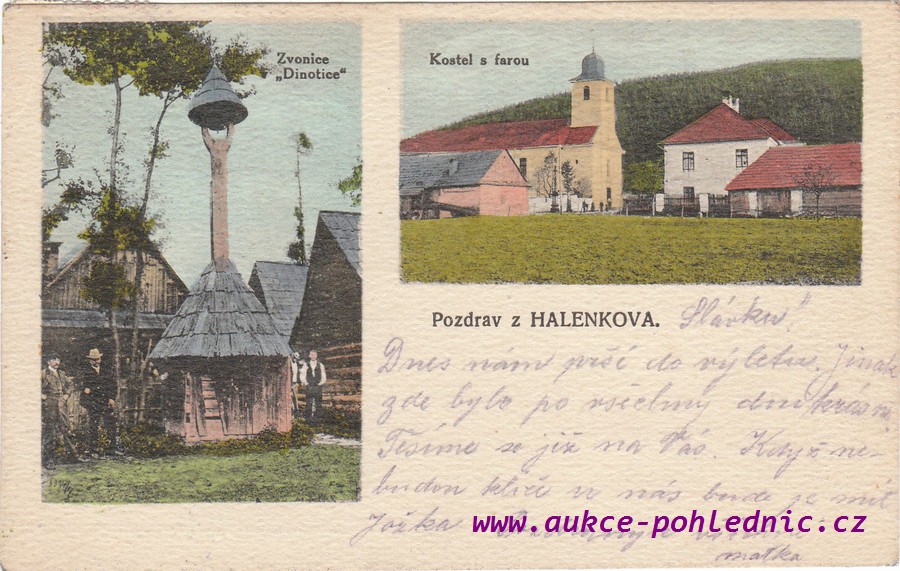 Zvonice
„Dinotice“
Kostel s farou
Pozdrav z HALENKOVA.
Slávku!
Dnes nám prší do výletu. Jinak
zde bylo po všechny dny krásně
Těšíme se již na Vás. Když ne-
budou klíče u nás bude je mít
Jožka
matka
www.aukce-pohlednic.cz